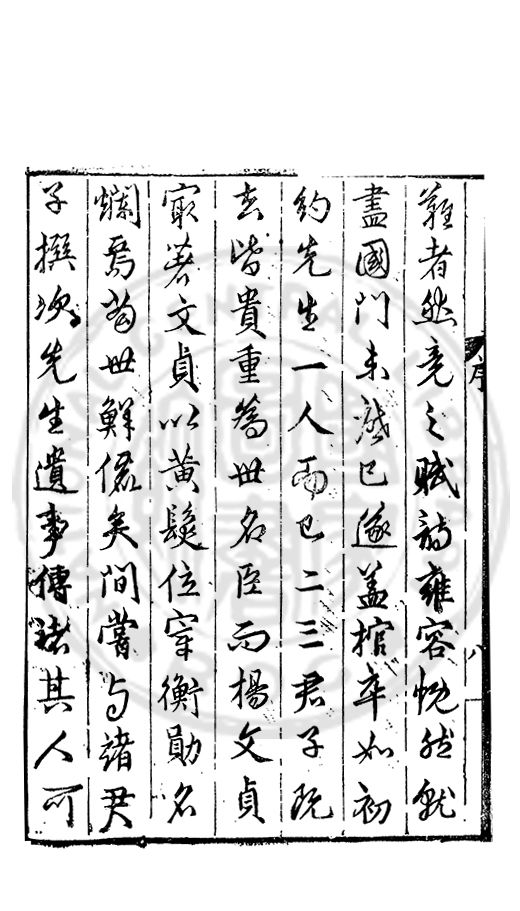 難者然竟之賦詩雍容恍然就
盡國門未已遂蓋棺卒如初
約先生一人而已二三君子既
去皆貴重為世名臣而楊文貞
最著文貞以黃髮位宰衡勛名
爛焉世鮮儷矣間嘗与諸君
子撰次先生遺事傳諸其人可
序
八